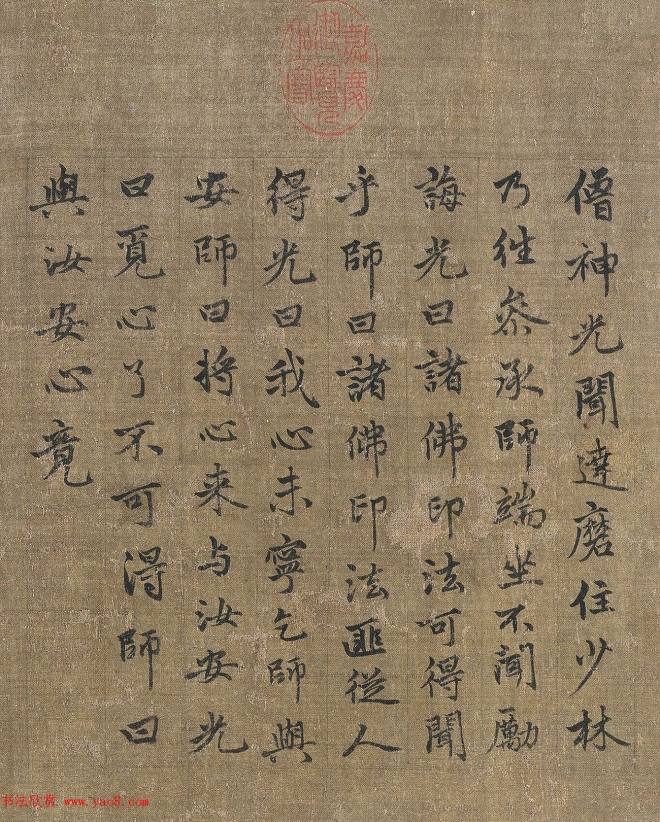 僧神光聞達磨住少林
乃徃叅承師端坐不聞勵
誨光曰諸佛印法可得聞
乎師曰諸佛印法匪從人
得光曰我心未寧乞師與
安師曰將心来与汝安光
曰覓心了不可得師曰
與汝安心竟
书法欣赏 www.yac8.com